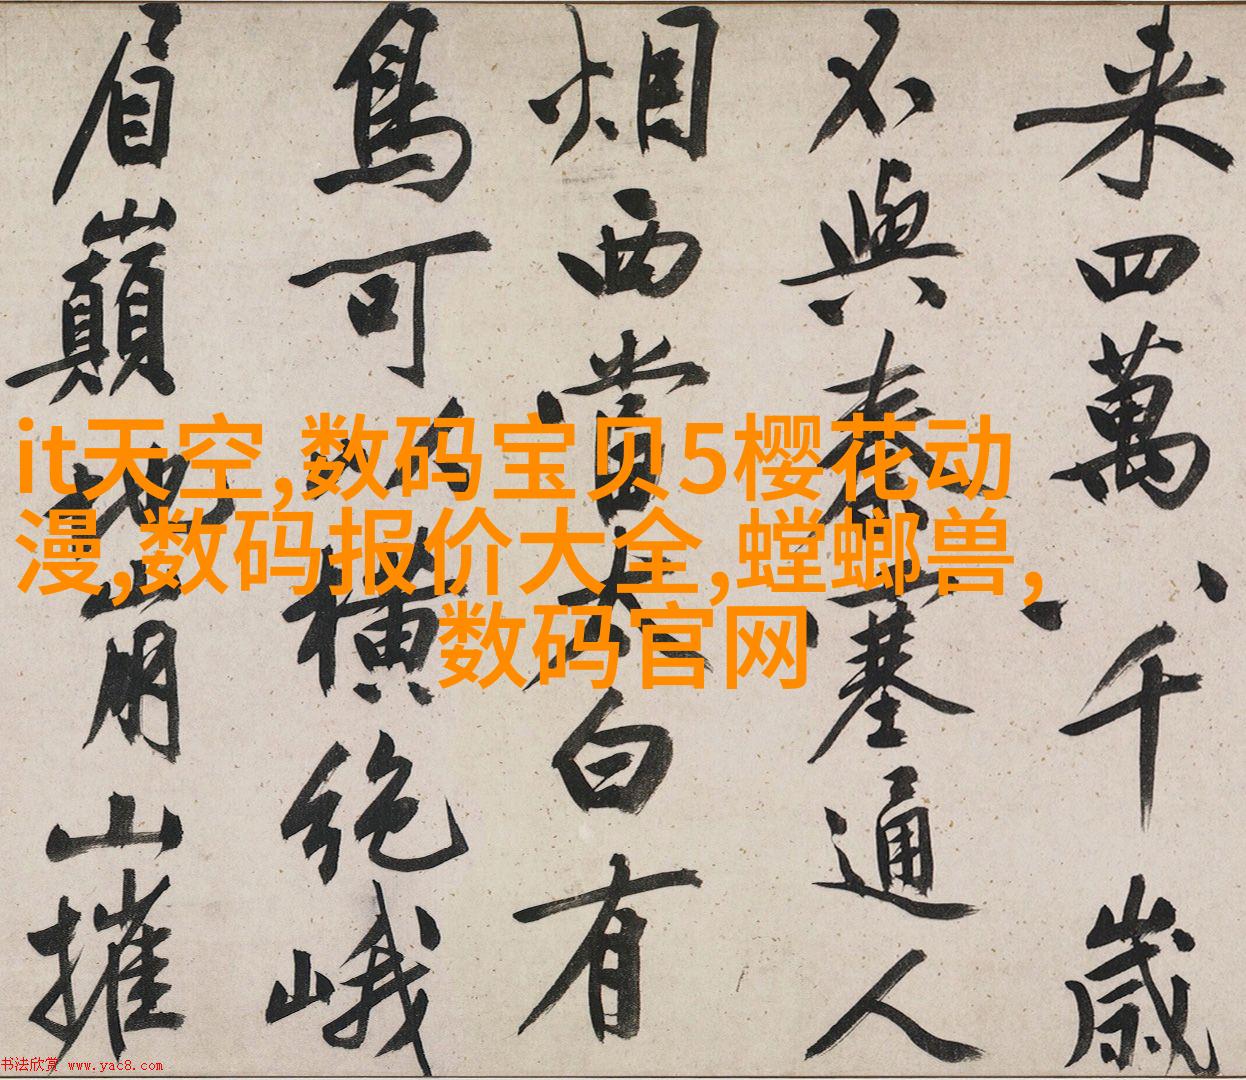 来四萬八千歲
不與秦塞通人
烟西當太白有
鳥可以横絶峨
眉巔地崩山摧
it天空,数码宝贝5樱花动
漫,数码报价大全,螳螂兽,
数码官网
书法欣赏 www.yac8.com